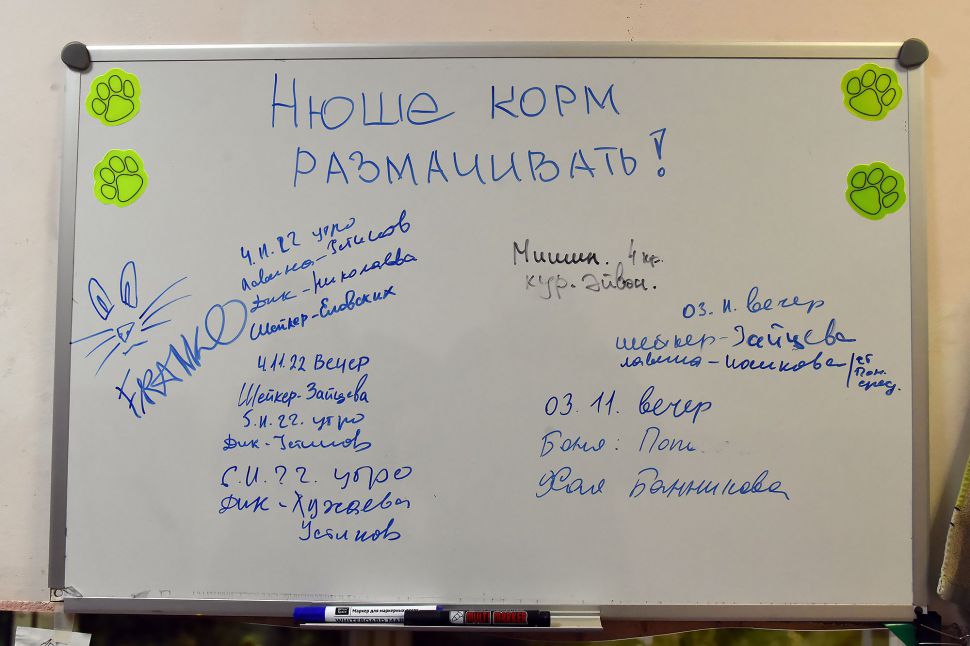 Нюше корм
размачивать!
4.11.22 утро
Лавина-Устинов
Дик-Николаева
Шейкер-Еловских
FRANK
4.11.22 Вечер
Шейкер-Зайцева
5.11.22. утро
Дик-Устинов
6.11.22. утро
Дик-Хужаева
Устинов
Мишин. 4 кр.
кур. Эйвон.
03.11. вечер
шейкер-Зайцева
лавина-Кошкова
03.11. вечер
Боня:
Хая Банникова
Маркер для маркерных
WHITEBOARD MAR
MULTI MARKER